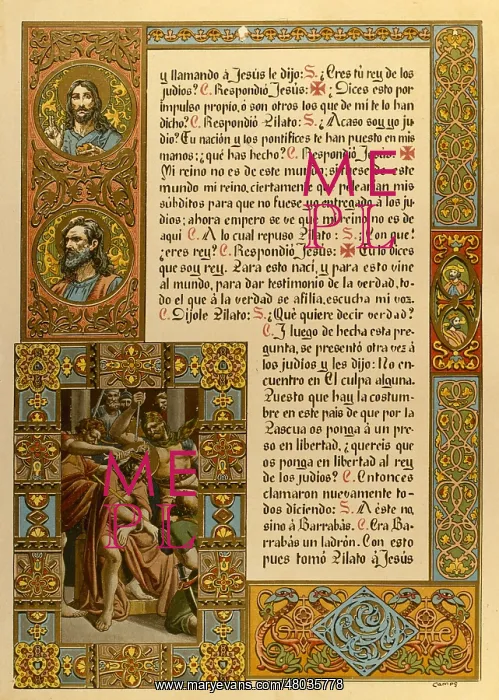 y llamando à Jesús le dijo: S. ¿Eres tú rey de los
judios? C. Respondió Jesús: ✠ ¿Dices esto por
impulso propio, ó son otros los que de mi te lo han
dicho? C. Respondió Pilato: S. ¿Acaso soy yo ju-
dio? Tu nación y los pontifices te han puesto en mis
manos: ¿qué has hecho? C. Respondió Jesús: ✠
Mi reino no es de este mundo; si fuese de este
mundo mi reino, ciertamente que pelearian mis
súbditos para que no fuese yo entregado à los ju-
dios; ahora empero se ve que mi reino no es de
aqui C. A lo cual repuso Pilato: S. ¿Con que!
¿eres rey? C. Respondió Jesús: ✠ Tu lo dices
que soy rey. Para esto naci, y para esto vine
al mundo, para dar testimonio de la verdad, to-
do el que à la verdad se afilia, escucha mi voz.
C. Dijole Pilato: S. ¿Qué quiere decir verdad?
C. I luego de hecha esta pre-
gunta, se presentó otra vez à
los judios y les dijo: No en-
cuentro en El culpa alguna.
Puesto que hay la costum-
bre en este pais de que por la
Pascua os ponga à un pre-
so en libertad, ¿quereis que
os ponga en libertad al rey
de los judios? C. Entonces
clamaron nuevamente to-
dos diciendo: S. A éste no,
sino à Barrabás. C. Era Ba-
rrabás un ladrón. Con esto
pues tomó Pilato à Jesús
ME
PL
ME
PL
Camps
www.maryevans.com/48035778